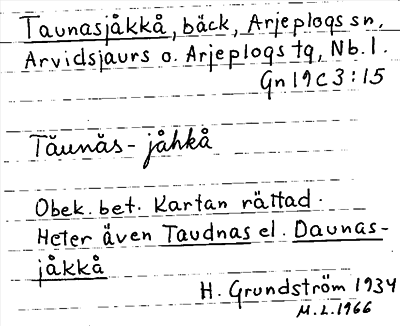 Taunasjåkkå, bäck, Arjeplogs sn,
Arvidsjaurs o. Arjeplogs tg, Nb. l.
Gn 19 C 3:15
Tău̯năs- jåhkå
Obek. bet. Kartan rättad.
Heter även Taudnas el. Daunas-
jåkkå
H. Grundström 1934
M.L. 1966